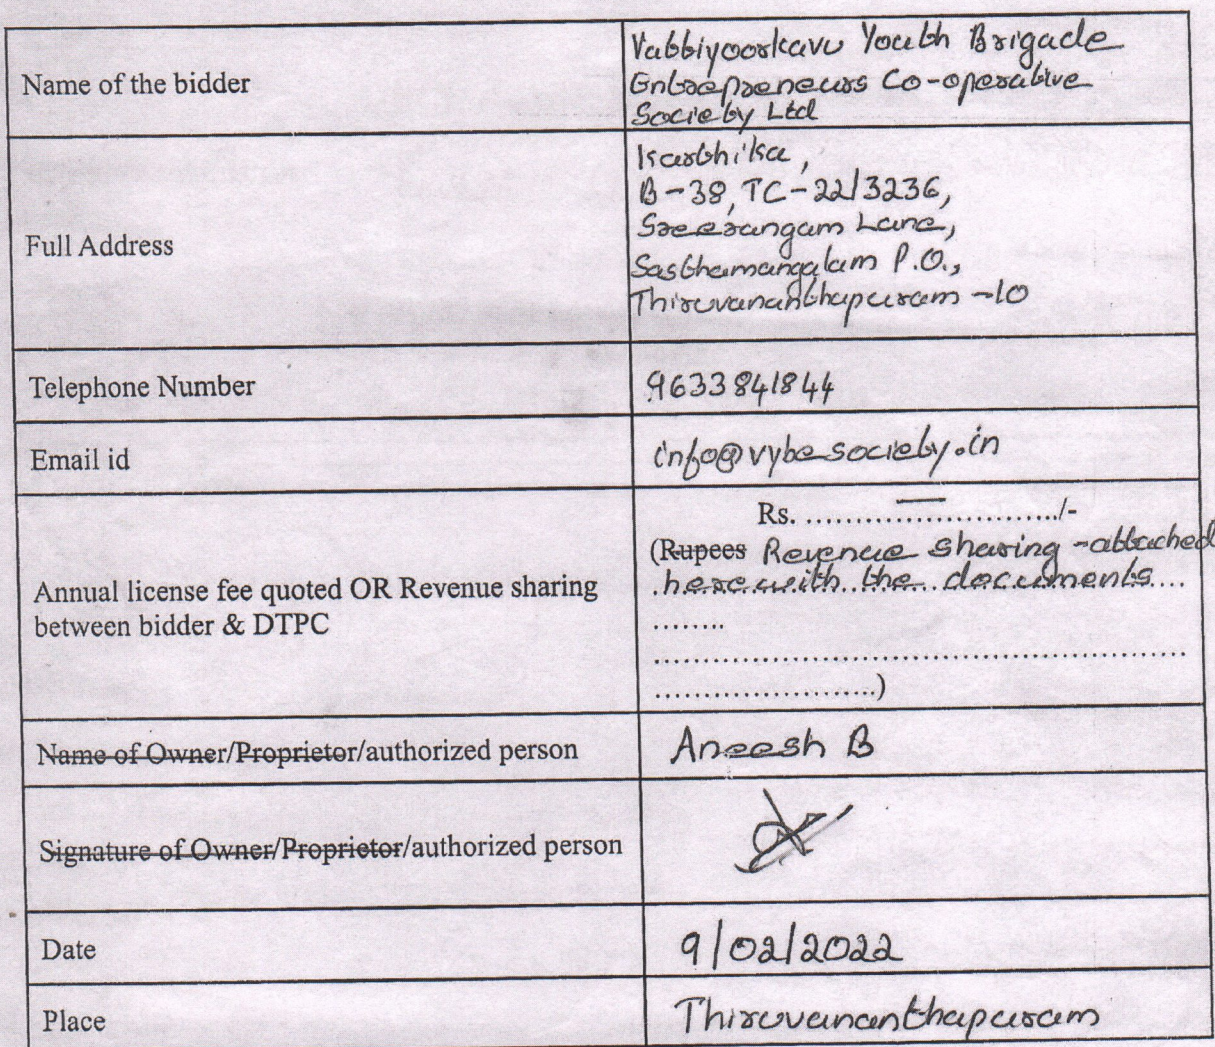 Name of the bidder
Vattiyoorkavu Youth Brigade
Entrepreneurs Co-operative
Society Ltd
Full Address
Karthika,
B-38, TC-22/3236,
Sreerangam Lane,
Sasthamangalam P.O.,
Thiruvananthapuram -10
Telephone Number
9633841844
Email id
info@vybesociety.in
Annual license fee quoted OR Revenue sharing
between bidder & DTPC
Rs. ..........—............../-
(Rupees Revenue sharing -attached
herewith the documents....
........
......................................................
.......................)
Name of Owner/Proprietor/authorized person
Aneesh B
Signature of Owner/Proprietor/authorized person
Date
9/02/2022
Place
Thiruvananthapuram